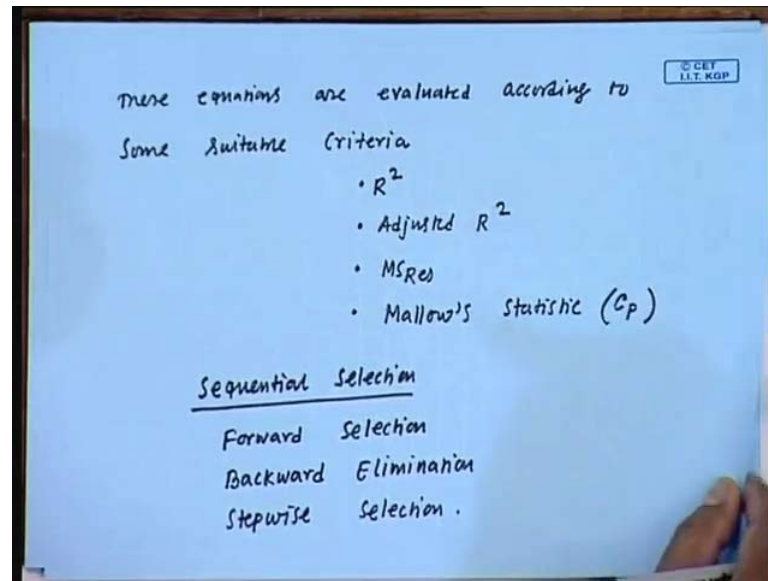 © CET
I.I.T. KGP
These equations are evaluated according to
Some suitable Criteria
• R²
• Adjusted R²
• MSRes
• Mallow's Statistic (Cp)
Sequential Selection
Forward Selection
Backward Elimination
Stepwise Selection.